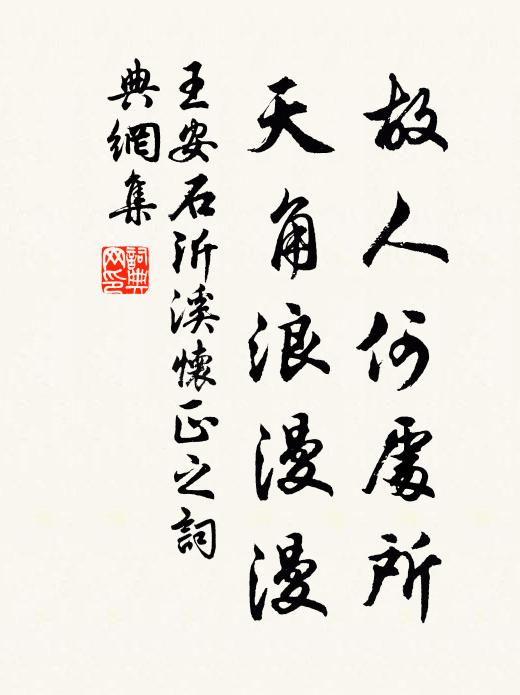 故人何處所
天角浪漫漫
王安石沂溪懷正之詞
典網集
詞典
网印